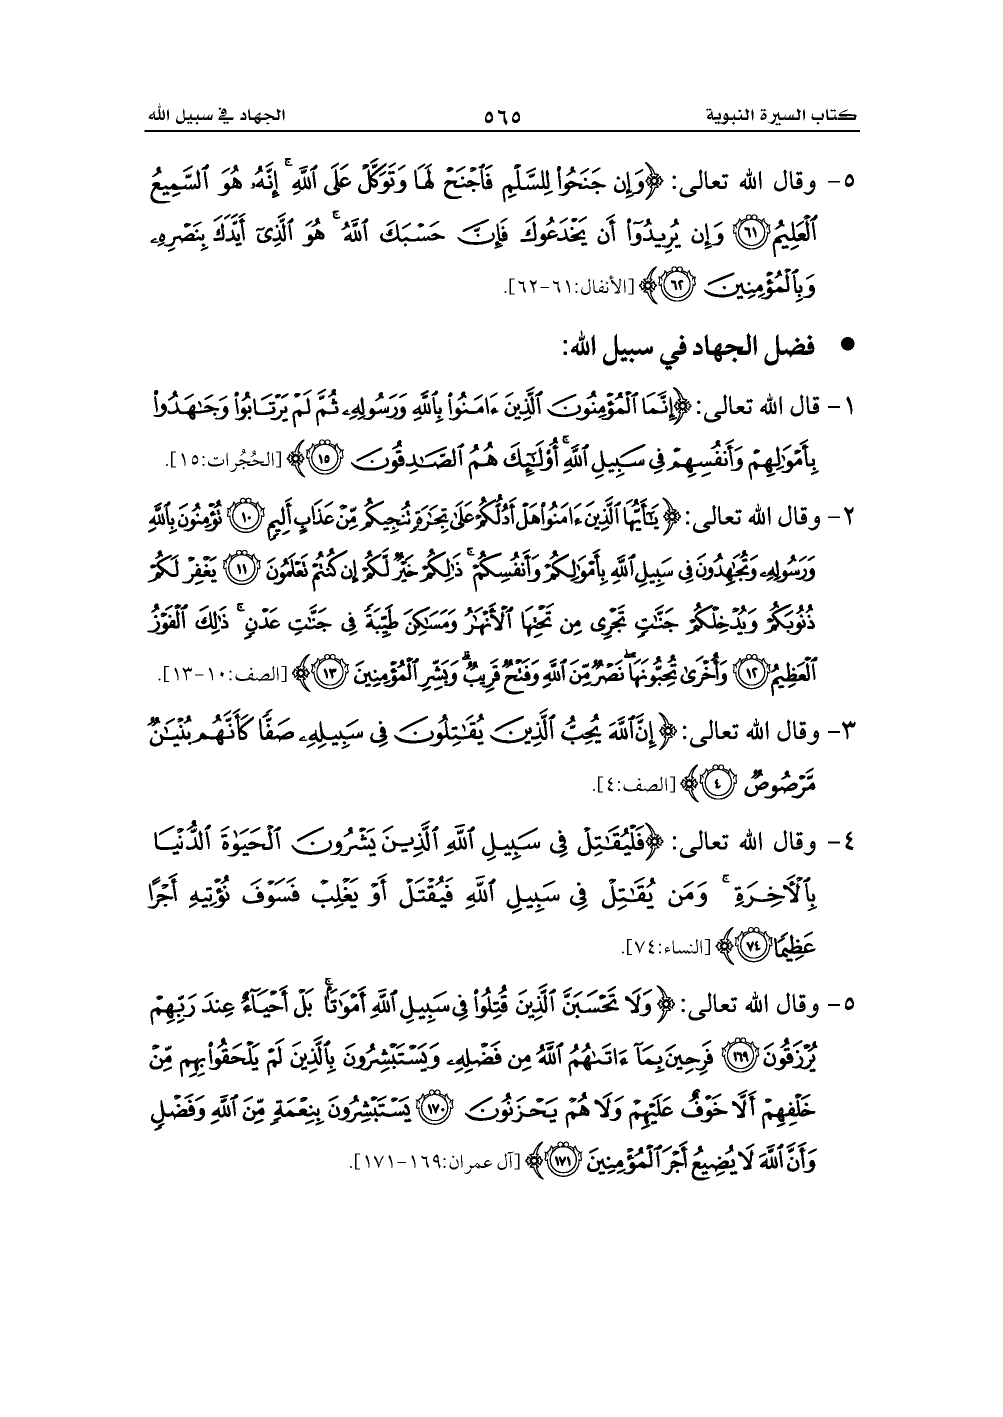 كتاب السيرة النبوية ٥٦٥ الجهاد في سبيل الله
٥- وقال الله تعالى: ﴿وَإِن جَنَحُواْ لِلسَّلْمِ فَٱجْنَحْ لَهَا وَتَوَكَّلْ عَلَى ٱللَّهِۚ إِنَّهُۥ هُوَ ٱلسَّمِيعُ
ٱلْعَلِيمُ ٦١ وَإِن يُرِيدُوٓاْ أَن يَخْدَعُوكَ فَإِنَّ حَسْبَكَ ٱللَّهُۚ هُوَ ٱلَّذِىٓ أَيَّدَكَ بِنَصْرِهِۦ
وَبِٱلْمُؤْمِنِينَ ٦٢﴾ [الأنفال:٦١-٦٢].
● فضل الجهاد في سبيل الله:
١- قال الله تعالى: ﴿إِنَّمَا ٱلْمُؤْمِنُونَ ٱلَّذِينَ ءَامَنُواْ بِٱللَّهِ وَرَسُولِهِۦ ثُمَّ لَمْ يَرْتَابُواْ وَجَٰهَدُواْ
بِأَمْوَٰلِهِمْ وَأَنفُسِهِمْ فِى سَبِيلِ ٱللَّهِۚ أُوْلَٰٓئِكَ هُمُ ٱلصَّٰدِقُونَ ١٥﴾ [الحُجُرات:١٥].
٢- وقال الله تعالى: ﴿يَٰٓأَيُّهَا ٱلَّذِينَ ءَامَنُواْ هَلْ أَدُلُّكُمْ عَلَىٰ تِجَٰرَةٍ تُنجِيكُم مِّنْ عَذَابٍ أَلِيمٍ ١٠ تُؤْمِنُونَ بِٱللَّهِ
وَرَسُولِهِۦ وَتُجَٰهِدُونَ فِى سَبِيلِ ٱللَّهِ بِأَمْوَٰلِكُمْ وَأَنفُسِكُمْۚ ذَٰلِكُمْ خَيْرٌ لَّكُمْ إِن كُنتُمْ تَعْلَمُونَ ١١ يَغْفِرْ لَكُمْ
ذُنُوبَكُمْ وَيُدْخِلْكُمْ جَنَّٰتٍ تَجْرِى مِن تَحْتِهَا ٱلْأَنْهَٰرُ وَمَسَٰكِنَ طَيِّبَةً فِى جَنَّٰتِ عَدْنٍۚ ذَٰلِكَ ٱلْفَوْزُ
ٱلْعَظِيمُ ١٢ وَأُخْرَىٰ تُحِبُّونَهَاۖ نَصْرٌ مِّنَ ٱللَّهِ وَفَتْحٌ قَرِيبٌۗ وَبَشِّرِ ٱلْمُؤْمِنِينَ ١٣﴾ [الصف:١٠-١٣].
٣- وقال الله تعالى: ﴿إِنَّ ٱللَّهَ يُحِبُّ ٱلَّذِينَ يُقَٰتِلُونَ فِى سَبِيلِهِۦ صَفًّا كَأَنَّهُم بُنْيَٰنٌ
مَّرْصُوصٌ ٤﴾ [الصف:٤].
٤- وقال الله تعالى: ﴿فَلْيُقَٰتِلْ فِى سَبِيلِ ٱللَّهِ ٱلَّذِينَ يَشْرُونَ ٱلْحَيَوٰةَ ٱلدُّنْيَا
بِٱلْأَخِرَةِۚ وَمَن يُقَٰتِلْ فِى سَبِيلِ ٱللَّهِ فَيُقْتَلْ أَوْ يَغْلِبْ فَسَوْفَ نُؤْتِيهِ أَجْرًا
عَظِيمًا ٧٤﴾ [النساء:٧٤].
٥- وقال الله تعالى: ﴿وَلَا تَحْسَبَنَّ ٱلَّذِينَ قُتِلُواْ فِى سَبِيلِ ٱللَّهِ أَمْوَٰتًۢاۚ بَلْ أَحْيَآءٌ عِندَ رَبِّهِمْ
يُرْزَقُونَ ١٦٩ فَرِحِينَ بِمَآ ءَاتَىٰهُمُ ٱللَّهُ مِن فَضْلِهِۦ وَيَسْتَبْشِرُونَ بِٱلَّذِينَ لَمْ يَلْحَقُواْ بِهِم مِّنْ
خَلْفِهِمْ أَلَّا خَوْفٌ عَلَيْهِمْ وَلَا هُمْ يَحْزَنُونَ ١٧٠ يَسْتَبْشِرُونَ بِنِعْمَةٍ مِّنَ ٱللَّهِ وَفَضْلٍ
وَأَنَّ ٱللَّهَ لَا يُضِيعُ أَجْرَ ٱلْمُؤْمِنِينَ ١٧١﴾ [آل عمران:١٦٩-١٧١].